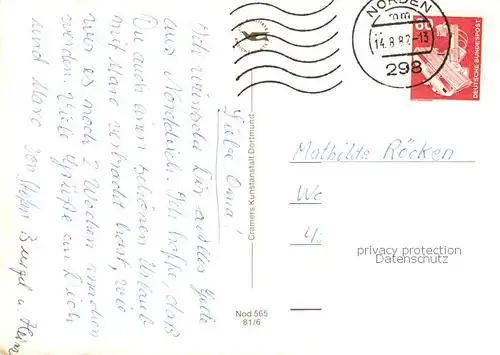 Liebe Oma!
Ich wünsche Dir alles Gute
aus Norddeich. Ich hoffe, daß
Du auch einen schönen Urlaub
mit Marc verbracht hast, wie
wir es noch 2 Wochen machen
werden. Viele Grüße an Dich
und Marc von Stefan
Cramers Kunstanstalt Dortmund
Nod 565
81/6
NORDEN
14.8.82-13
298
60
DEUTSCHE BUNDESPOST
Mathilde Röcken
privacy protection
Datenschutz